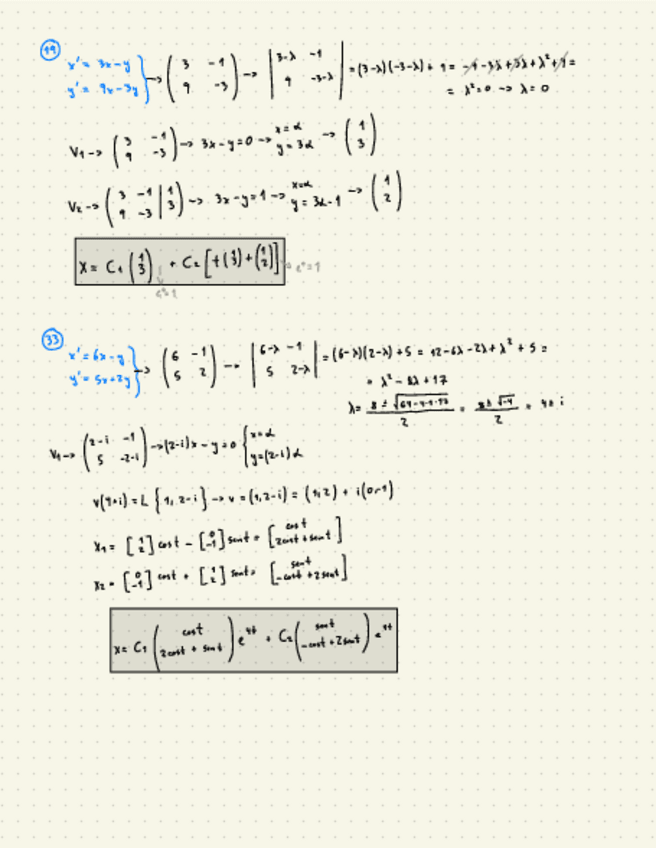 19
x' = 3x-y
y' = 9x-3y } → ( 3 -1 ; 9 -3 ) → | 3-λ -1 ; 9 -3-λ | = (3-λ)(-3-λ) + 9 = -9-3λ+3λ+λ²+9 =
= λ²=0 → λ=0
V1 → ( 3 -1 ; 9 -3 ) → 3x-y=0 → x=α y=3α → ( 1 ; 3 )
V2 → ( 3 -1 | 1 ; 9 -3 | 3 ) → 3x-y=1 → x=α y=3α-1 → ( 1 ; 2 )
X = C1 ( 1 ; 3 ) + C2 [ t ( 1 ; 3 ) + ( 1 ; 2 ) ] e⁰=1
e⁰=1
33
x' = 6x-y
y' = 5x+2y } → ( 6 -1 ; 5 2 ) → | 6-λ -1 ; 5 2-λ | = (6-λ)(2-λ) + 5 = 12-6λ-2λ+λ²+5 =
= λ²-8λ+17
λ = (8 ± √(64-4·1·17)) / 2 = (8 ± √-4) / 2 = 4 ± i
V1 → ( 2-i -1 ; 5 -2-i ) → (2-i)x-y=0 { x=α y=(2-i)α
v(4+i) = L { 1, 2-i } → v = (1, 2-i) = (1,2) + i(0,-1)
x1 = [ 1 ; 2 ] cost - [ 0 ; -1 ] sent = [ cost ; 2cost+sent ]
x2 = [ 0 ; -1 ] cost + [ 1 ; 2 ] sent = [ sent ; -cost+2sent ]
x = C1 ( cost ; 2cost + sent ) e⁴ᵗ + C2 ( sent ; -cost+2sent ) e⁴ᵗ